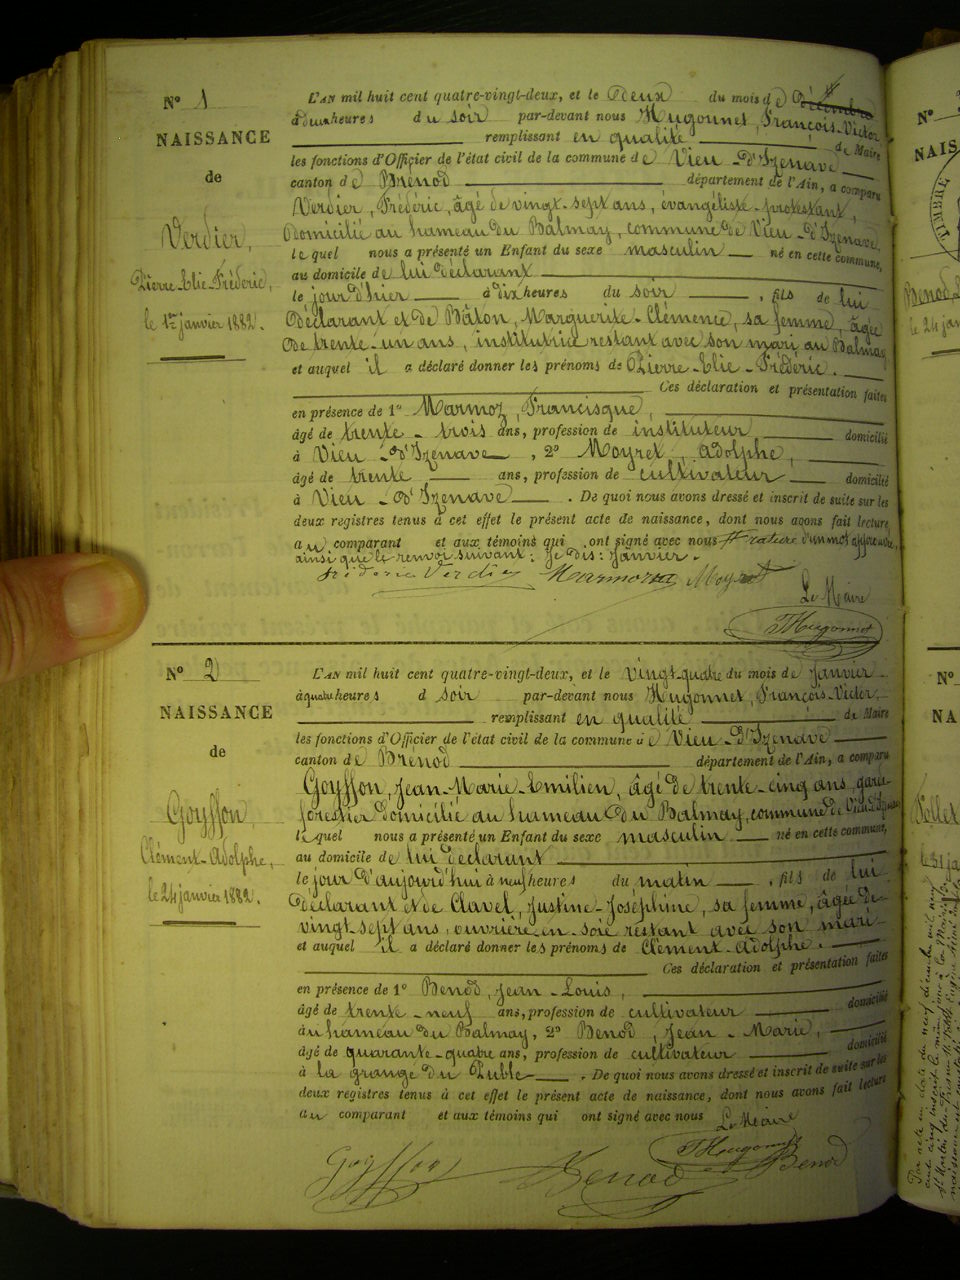 N° 1
NAISSANCE
de
Verdier,
Pierre-Elie-Fréderic,
le 1er janvier 1882.
L'AN mil huit cent quatre-vingt-deux, et le Deux du mois de Décembre
à deux heures du soir par-devant nous Hugonnet, François-Victor
remplissant en qualité de Maire
les fonctions d'Officier de l'état civil de la commune de Vieu-d'Izenave
canton de Brenod département de l'Ain, a comparu
Verdier, Fréderic, âgé de vingt-sept ans, évangeliste-protestant,
domicilié au hameau du Balmay, commune de Vieu-d'Izenave,
lequel nous a présenté un Enfant du sexe masculin né en cette commune,
au domicile de lui déclarant
le jour d'hier à dix heures du soir, fils de lui
déclarant et de Bâton, Marguerite-Clémence, sa femme, âgée
de trente-un ans, institutrice restant avec son mari au Balmay
et auquel il a déclaré donner les prénoms de Pierre-Elie-Fréderic.
Ces déclaration et présentation faites
en présence de 1° Marmoz, Francisque,
âgé de trente-trois ans, profession de instituteur domicilié
à Vieu-d'Izenave, 2° Moyret, Adolphe,
âgé de trente ans, profession de cultivateur domicilié
à Vieu-d'Izenave. De quoi nous avons dressé et inscrit de suite sur les
deux registres tenus à cet effet le présent acte de naissance, dont nous avons fait lecture,
au comparant et aux témoins qui ont signé avec nous # rature d'un mot approuvée,
ainsi que le renvoi suivant: Je dis: Janvier.
Fréderic Verdier Marmoz Moyret
Le Maire
Hugonnet
N° 2
NAISSANCE
de
Goyffon
Clément-Adolphe,
le 24 janvier 1882
L'AN mil huit cent quatre-vingt-deux, et le Vingt-quatre du mois de Janvier
à quatre heures d soir par-devant nous Hugonnet, François-Victor,
remplissant en qualité de Maire
les fonctions d'Officier de l'état civil de la commune de Vieu-d'Izenave
canton de Brenod département de l'Ain, a comparu
Goyffon, Jean-Marie-Emilien, âgé de trente-cinq ans, garde
forestier domicilié au hameau du Balmay, commune de Vieu-d'Izenave
lequel nous a présenté un Enfant du sexe masculin né en cette commune,
au domicile de lui déclarant
le jour d'aujourd'hui à neuf heures du matin, fils de lui
déclarant et de Clavel, Justine-Joséphine, sa femme, âgée de
vingt-sept ans, ouvrière-en-soie restant avec son mari
et auquel il a déclaré donner les prénoms de Clément-Adolphe.
Ces déclaration et présentation faites
en présence de 1° Benod, Jean-Louis,
âgé de trente-neuf ans, profession de cultivateur domicilié
au hameau du Balmay, 2° Benod, Jean-Marie,
âgé de quarante-quatre ans, profession de cultivateur domicilié
à la grange du . De quoi nous avons dressé et inscrit de suite sur les
deux registres tenus à cet effet le présent acte de naissance, dont nous avons fait lecture
au comparant et aux témoins qui ont signé avec nous
Le Maire
Hugonnet
Goyffon Benod Benod
N°
NAIS
TIMBRE
Benod
N°
NA